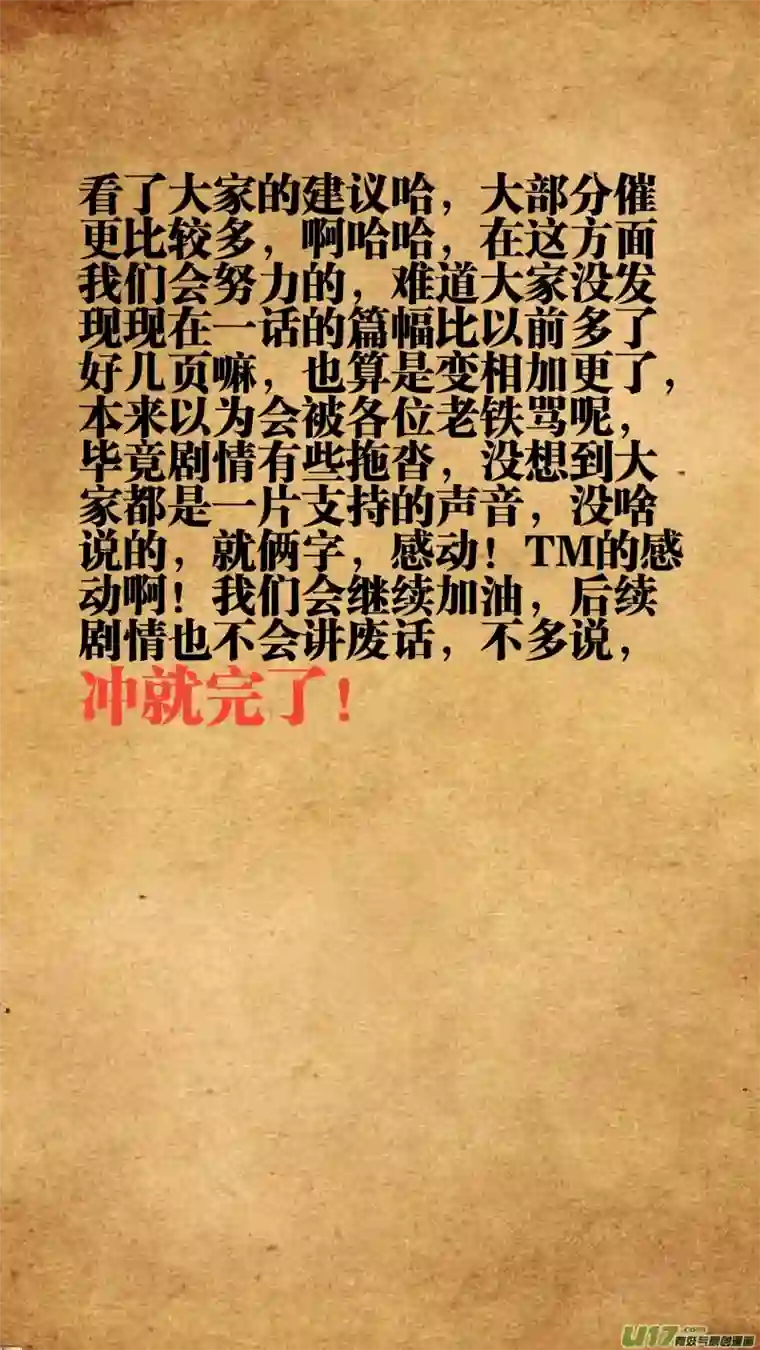 看了大家的建议哈，大部分催
更比较多，啊哈哈，在这方面
我们会努力的，难道大家没发
现现在一话的篇幅比以前多了
好几页嘛，也算是变相加更了，
本来以为会被各位老铁骂呢，
毕竟剧情有些拖沓，没想到大
家都是一片支持的声音，没啥
说的，就俩字，感动！TM的感
动啊！我们会继续加油，后续
剧情也不会讲废话，不多说，
冲就完了！
U17.com
有妖气原创漫画